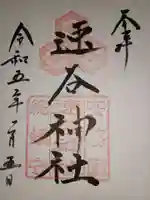 奉拝
速谷神社
令和五年一月五日